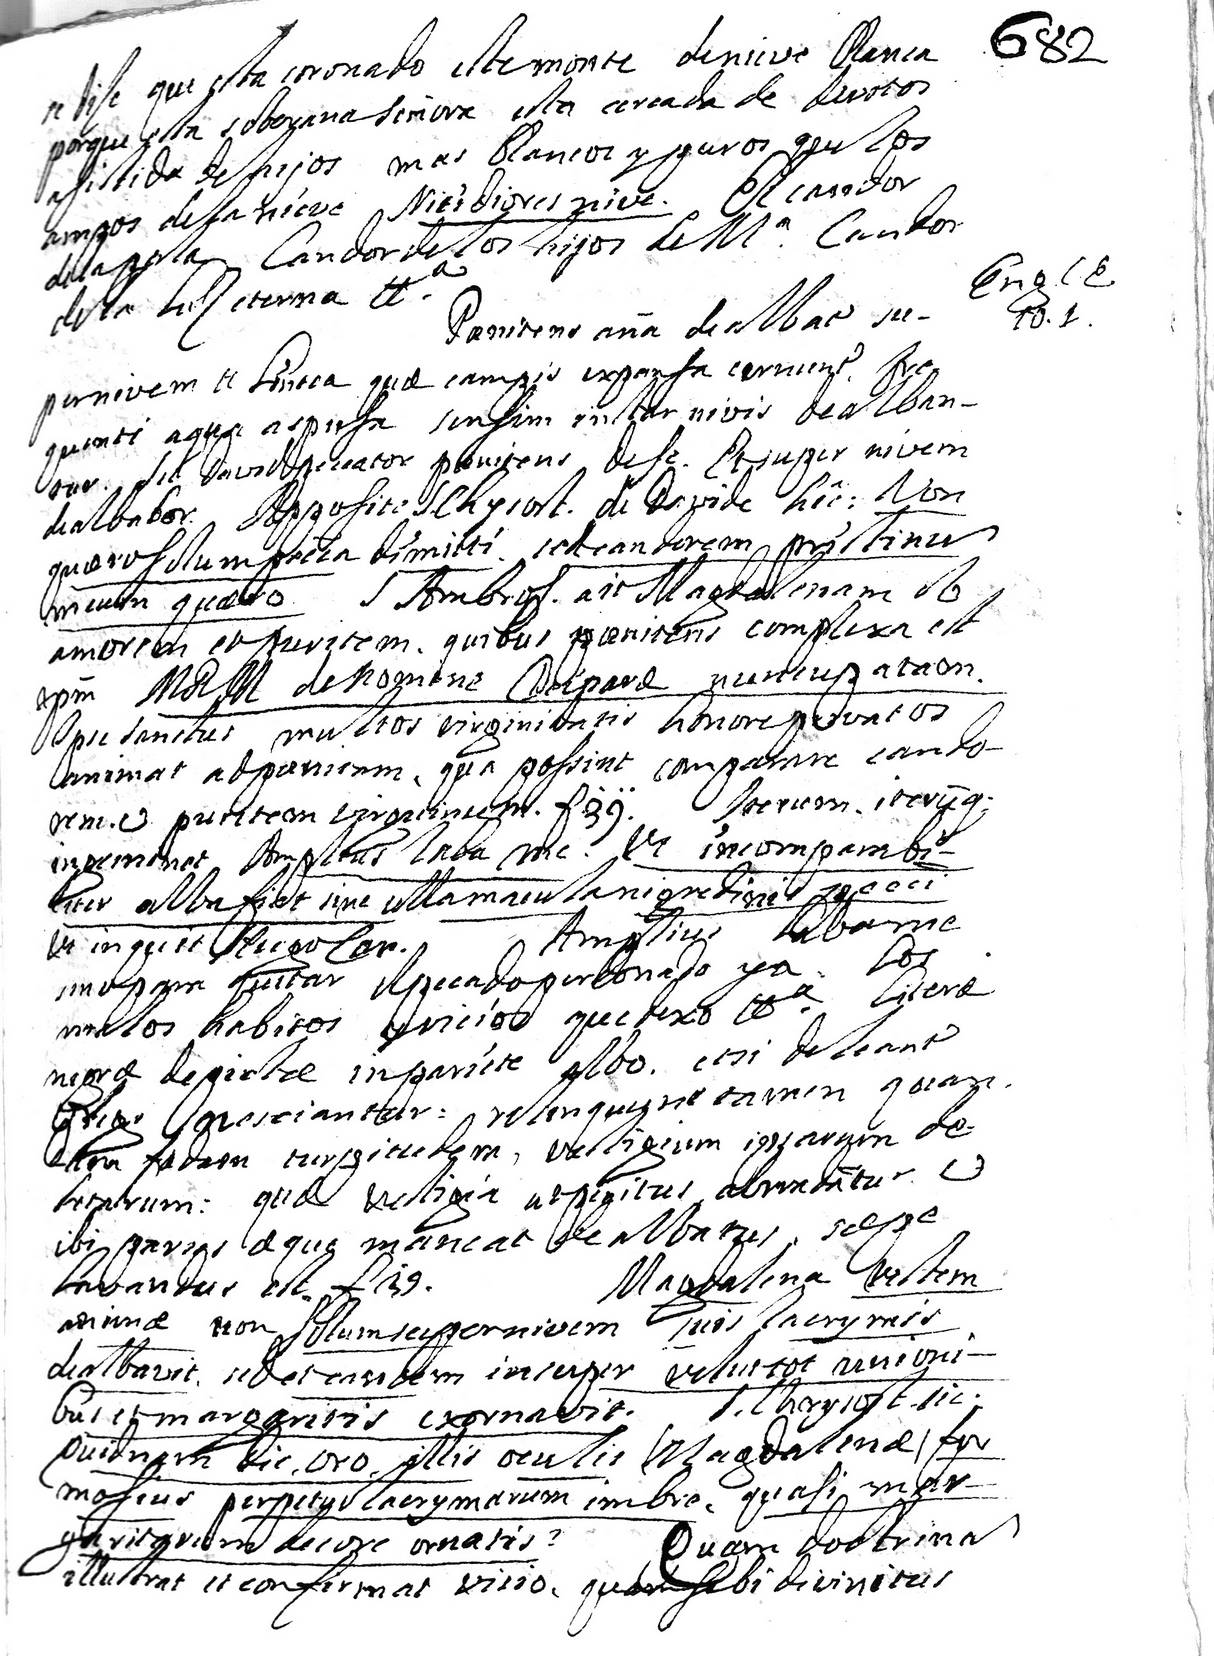 682
se dise que esta coronado este monte de nieve blanca
porque esta soberana Señora esta cercada de devotos
asistida de hijos mas blancos y puros que los
ampos de la nieve Nitidiores nive. El candor
de la plata Candor de los hijos de Mª Candor
de la luz eterna ttª
Engl E
to. 1.
Pœnitens aña dealbat su-
per nivem et lintea quæ campis expansa fre
quenti aqua aspersa sensim instar nivis dealban-
tur. sic David peccator pœnitens dese. Et super nivem
dealbabor. Apposite S Chysost. de Davide hic: Non
quæro solum peccta dimitti sed candorem pristinu
meum quæro S Ambros. ait Magdalenam ob
amorem et puritem. quibus pœnitens complexa est
xpm de nomine Deiparæ nuncupatam.
Spu Sanctus multos virginitatis honore privatos
animat ad pœnitem, qua possint comparare cando-
rem. et puritem virgineum. f 39. Iterum. iterũq;
ingeminat Amplius laba me. Vt incomparabi-
liter alba fiat sine ulla macula nigredinis pecci
vt inquit Hugo Car. Amplius laba me
uno para quitar el pecado perdonado ya. los
malos habitos y vicios que dexo ttª. Literæ
nigræ depictæ in pariete albo. etsi deleant
nesciantur: relinquunt tamen quan
dam fœdam turpitudem, vestigium ipsarum de-
letarum: quæ vestigia ut penitus abradãtur et
ibi paries æque maneat dealbatus, sæpe
lavandus est. f 39. Magdalena vestem
animæ non solum super nivem suis lacrymis
dealbavit, sed et eandem insuper velut tot unioni-
bus et margaritis exornavit. S. Chrysost. sic:
Quidnam dic, oro, illis oculis (Magdalenæ) for
mosius perpetuo lacrymarum imbre, quasi mar-
garitarum decore ornatis? Quam doctrina
illustrat et confirmat visio, quam sibi divinitus